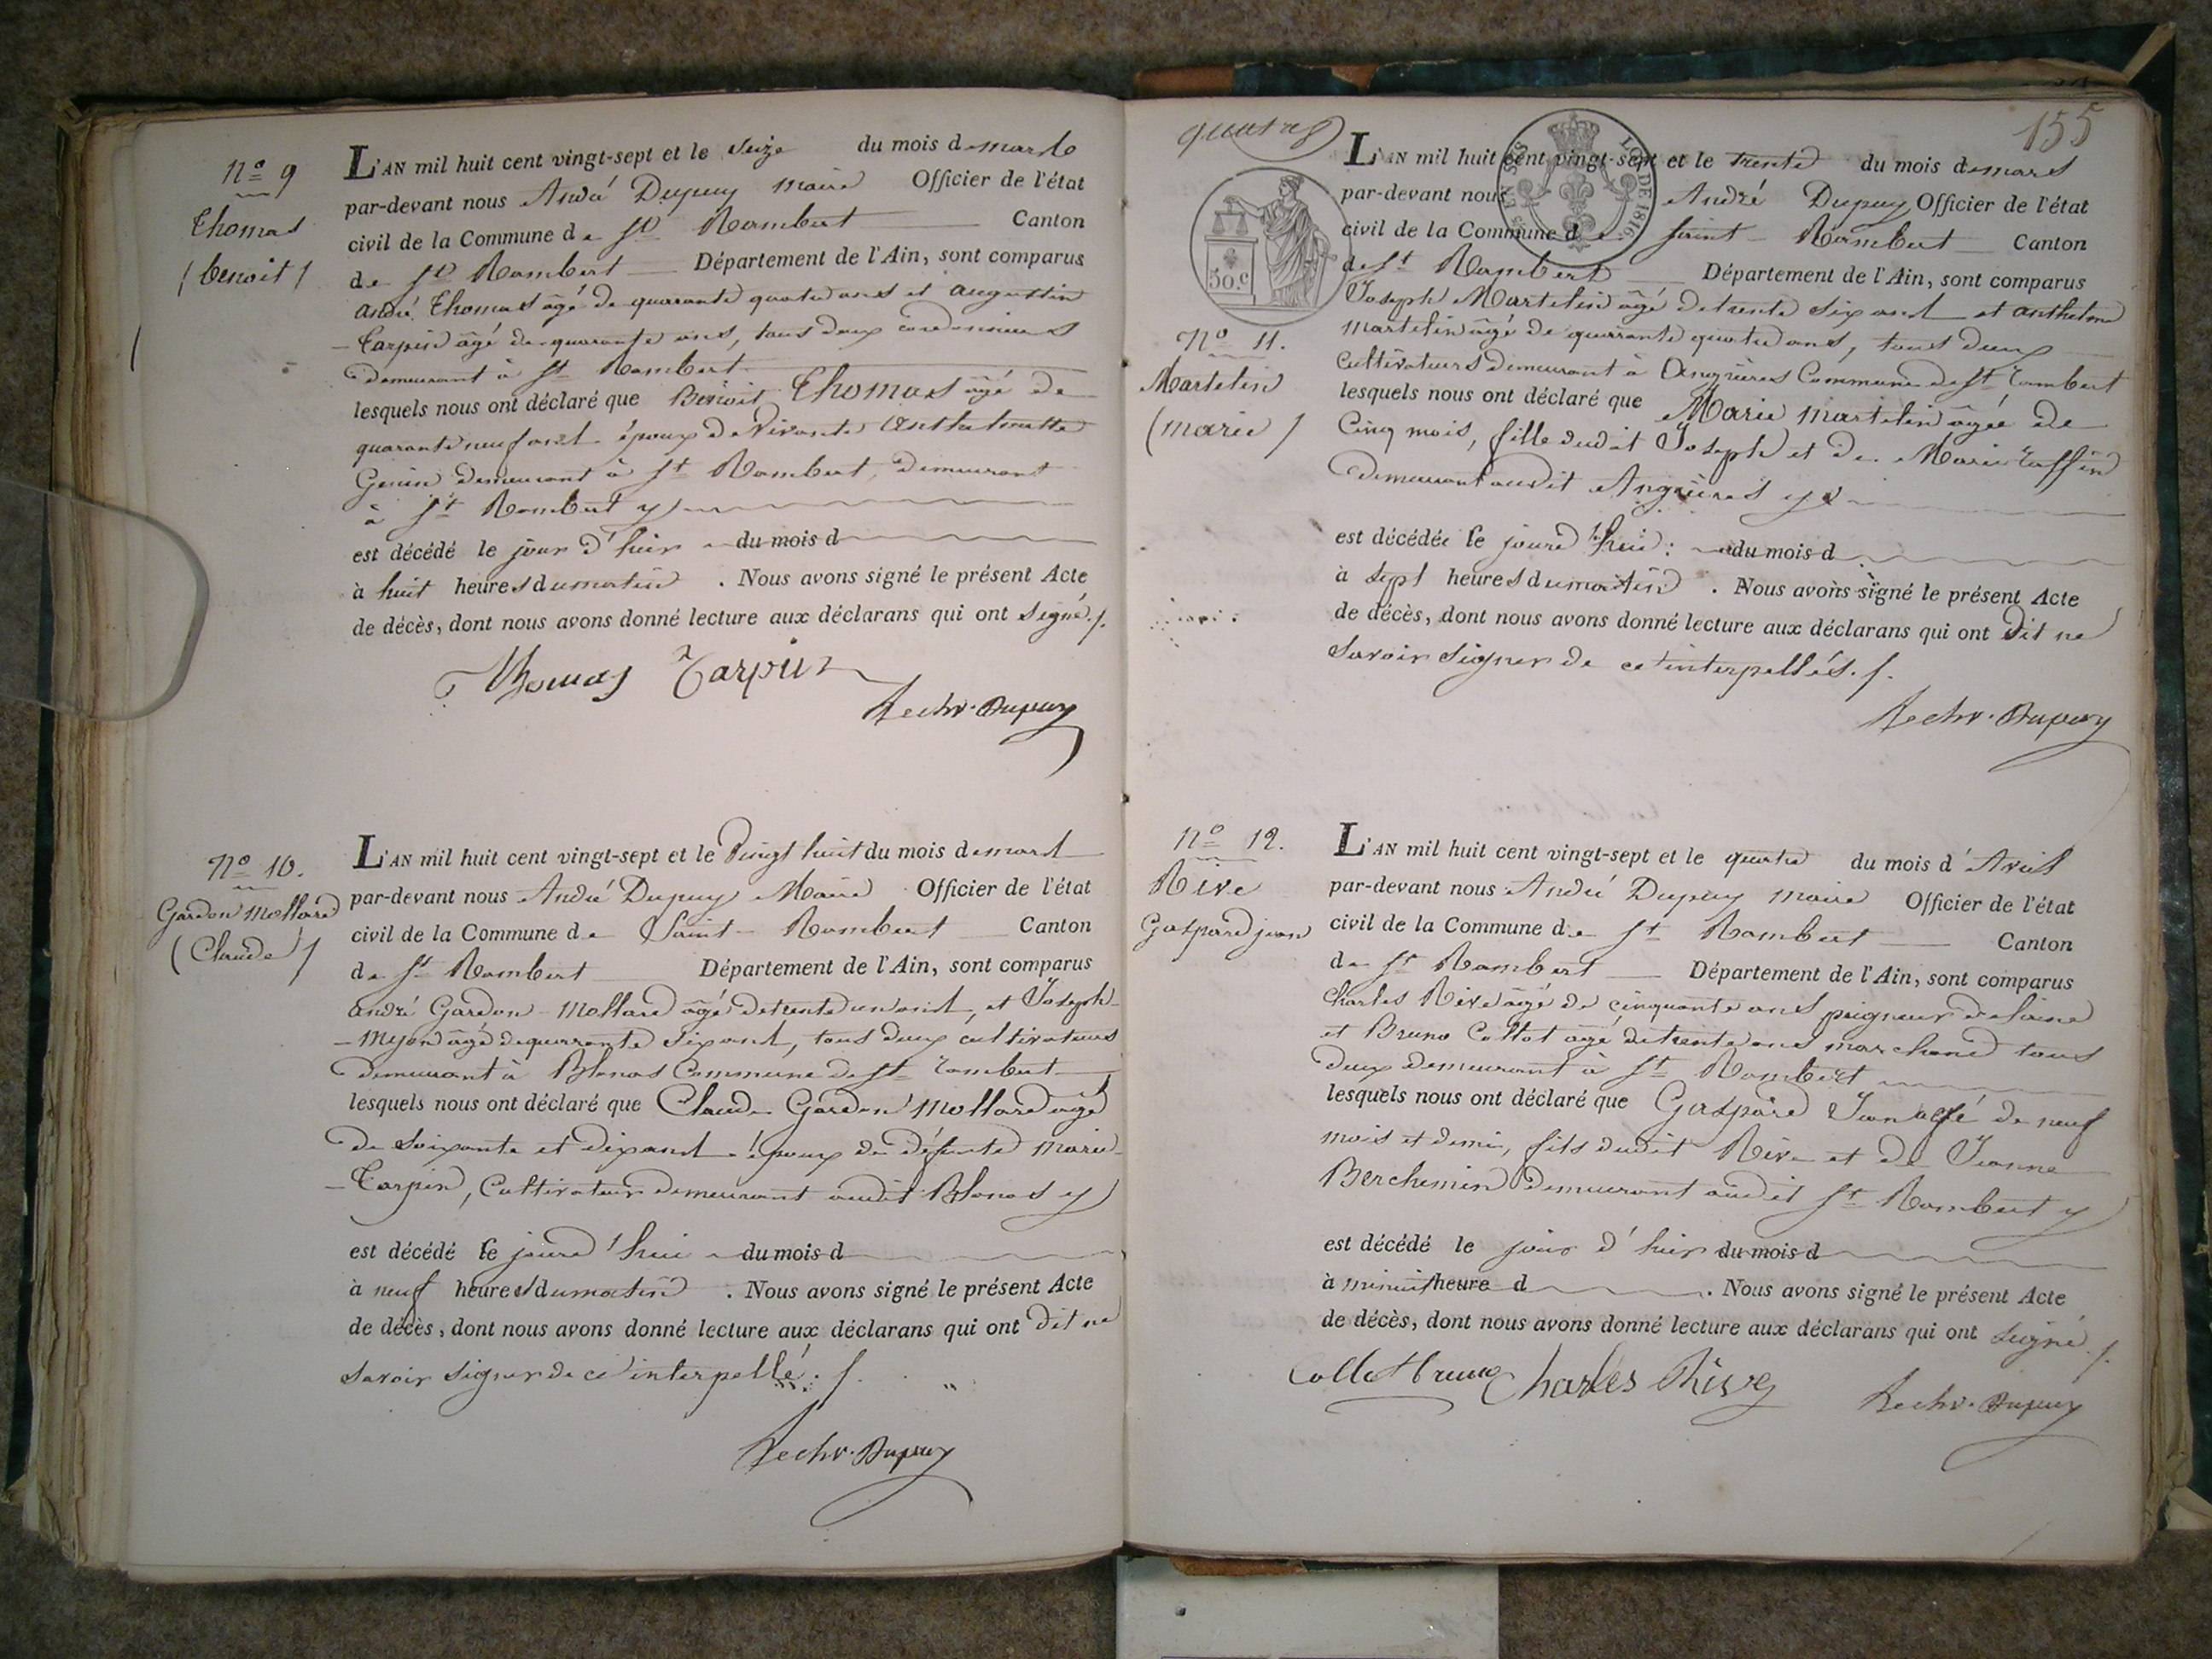 n.º 9
Thomas
(benoit)
L'AN mil huit cent vingt-sept et le seize du mois de mars
par-devant nous André Dupuy maire Officier de l'état
civil de la Commune de St Rambert Canton
de St Rambert Département de l'Ain, sont comparus
andré Thomas âgé de quarante quatre ans et augustin
Tarpin âgé de quarante ans, tous deux cordonniers
demeurant à St Rambert
lesquels nous ont déclaré que Benoit Thomas âgé de
quarante neuf ans époux de vivante Anthelmette
Genin demeurant à St Rambert, demeurant
à St Rambert y
est décédé le jour d'hier du mois d
à huit heures du matin. Nous avons signé le présent Acte
de décès, dont nous avons donné lecture aux déclarans qui ont signé./.
Thomas Tarpin
Dupuy
n.º 10.
Gardon Mollard
(Claude)
L'AN mil huit cent vingt-sept et le vingt huit du mois de mars
par-devant nous André Dupuy Maire Officier de l'état
civil de la Commune de Saint Rambert Canton
de St Rambert Département de l'Ain, sont comparus
andré Gardon-Mollard âgé de trente un ans, et Joseph
Myon âgé de quarante six ans, tous deux cultivateurs
demeurant à Blanas Commune de St rambert
lesquels nous ont déclaré que Claude Gardon Mollard âgé
de soixante et dix ans époux de défunte Marie
Tarpin, Cultivateur demeurant audit Blanas y
est décédé le jourd'hui du mois d
à neuf heures du matin. Nous avons signé le présent Acte
de décès, dont nous avons donné lecture aux déclarans qui ont dit ne
savoir signer de ce interpellé./.
Dupuy
quatre
155
LOI DE 1816
50.c
n.º 11.
Martelin
(marie)
L'AN mil huit cent vingt-sept et le trente du mois de mars
par-devant nous André Dupuy Officier de l'état
civil de la Commune de saint Rambert Canton
de St Rambert Département de l'Ain, sont comparus
Joseph Martelin âgé de trente six ans et anthelme
martelin âgé de quarante quatre ans, tous deux
cultivateurs demeurant à Angrières Commune de St rambert
lesquels nous ont déclaré que Marie martelin âgée de
Cinq mois, fille dudit Joseph et de Marie
demeurant audit Angrières y
est décédée le jourd'hui: du mois d
à sept heures du matin. Nous avons signé le présent Acte
de décès, dont nous avons donné lecture aux déclarans qui ont dit ne
savoir signer de ce interpellés./.
Dupuy
n.º 12.
Rive
Gaspard jean
L'AN mil huit cent vingt-sept et le quatre du mois d'Avril
par-devant nous André Dupuy maire Officier de l'état
civil de la Commune de St Rambert Canton
de St Rambert Département de l'Ain, sont comparus
Charles Rive âgé de cinquante ans peigneur de laine
et Bruno Collot âgé de trente ans marchand tous
deux demeurant à St Rambert
lesquels nous ont déclaré que Gaspard Jean âgé de neuf
mois et demi, fils dudit Rive et de Jeanne
Berchemin demeurant audit St Rambert y
est décédé le jour d'hier du mois d
à minuit heure d. Nous avons signé le présent Acte
de décès, dont nous avons donné lecture aux déclarans qui ont signé./.
Collot bruno Charles Rive
Dupuy